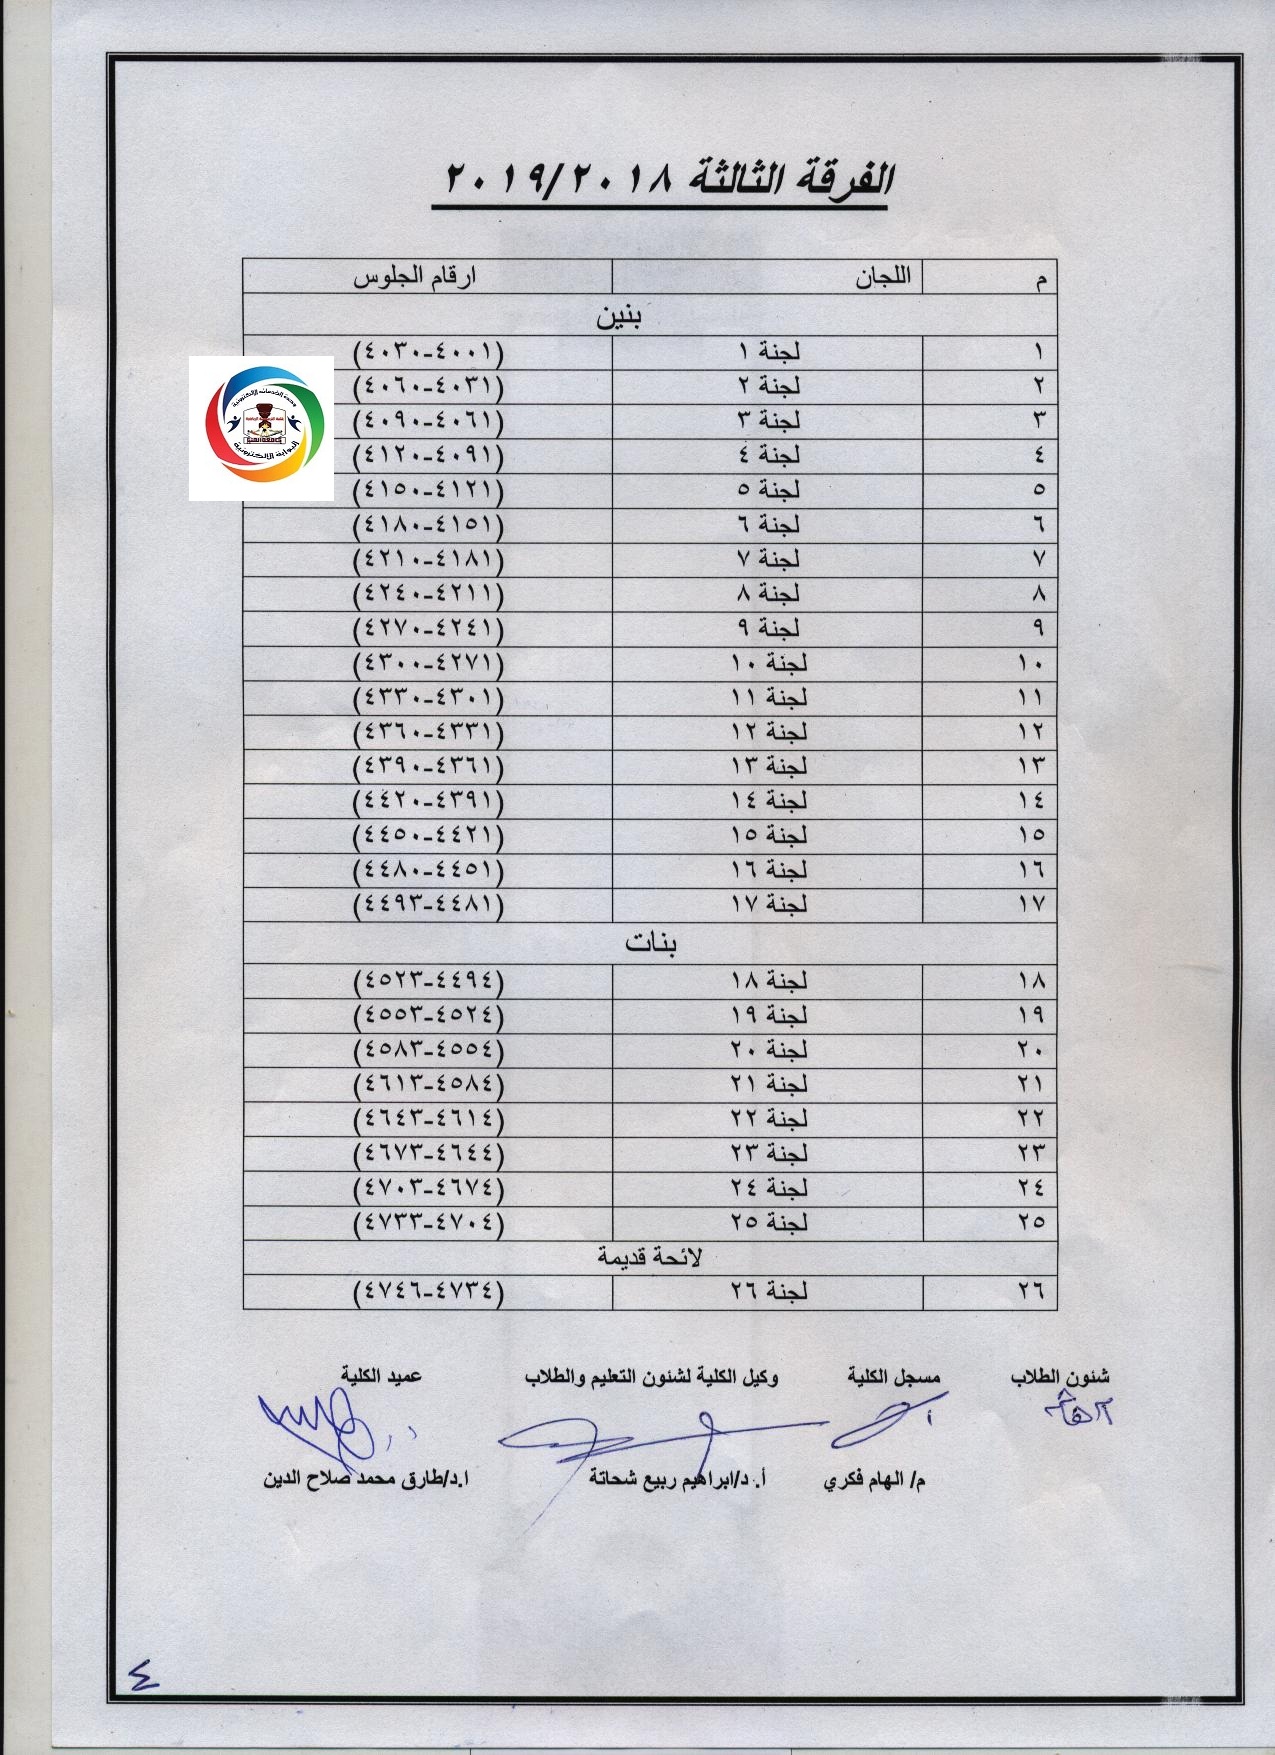 الفرقة الثالثة ٢٠١٩/٢٠١٨
م اللجان ارقام الجلوس
بنين
١ لجنة ١ (٤٠٠١-٤٠٣٠)
٢ لجنة ٢ (٤٠٣١-٤٠٦٠)
٣ لجنة ٣ (٤٠٦١-٤٠٩٠)
٤ لجنة ٤ (٤٠٩١-٤١٢٠)
٥ لجنة ٥ (٤١٢١-٤١٥٠)
٦ لجنة ٦ (٤١٥١-٤١٨٠)
٧ لجنة ٧ (٤١٨١-٤٢١٠)
٨ لجنة ٨ (٤٢١١-٤٢٤٠)
٩ لجنة ٩ (٤٢٤١-٤٢٧٠)
١٠ لجنة ١٠ (٤٢٧١-٤٣٠٠)
١١ لجنة ١١ (٤٣٠١-٤٣٣٠)
١٢ لجنة ١٢ (٤٣٣١-٤٣٦٠)
١٣ لجنة ١٣ (٤٣٦١-٤٣٩٠)
١٤ لجنة ١٤ (٤٣٩١-٤٤٢٠)
١٥ لجنة ١٥ (٤٤٢١-٤٤٥٠)
١٦ لجنة ١٦ (٤٤٥١-٤٤٨٠)
١٧ لجنة ١٧ (٤٤٨١-٤٤٩٣)
بنات
١٨ لجنة ١٨ (٤٤٩٤-٤٥٢٣)
١٩ لجنة ١٩ (٤٥٢٤-٤٥٥٣)
٢٠ لجنة ٢٠ (٤٥٥٤-٤٥٨٣)
٢١ لجنة ٢١ (٤٥٨٤-٤٦١٣)
٢٢ لجنة ٢٢ (٤٦١٤-٤٦٤٣)
٢٣ لجنة ٢٣ (٤٦٤٤-٤٦٧٣)
٢٤ لجنة ٢٤ (٤٦٧٤-٤٧٠٣)
٢٥ لجنة ٢٥ (٤٧٠٤-٤٧٣٣)
لائحة قديمة
٢٦ لجنة ٢٦ (٤٧٣٤-٤٧٤٦)
وحدة الخدمات الإلكترونية
البوابة الإلكترونية
شئون الطلاب مسجل الكلية وكيل الكلية لشئون التعليم والطلاب عميد الكلية
م/ الهام فكري أ. د/ابراهيم ربيع شحاتة ا.د/طارق محمد صلاح الدين
٤